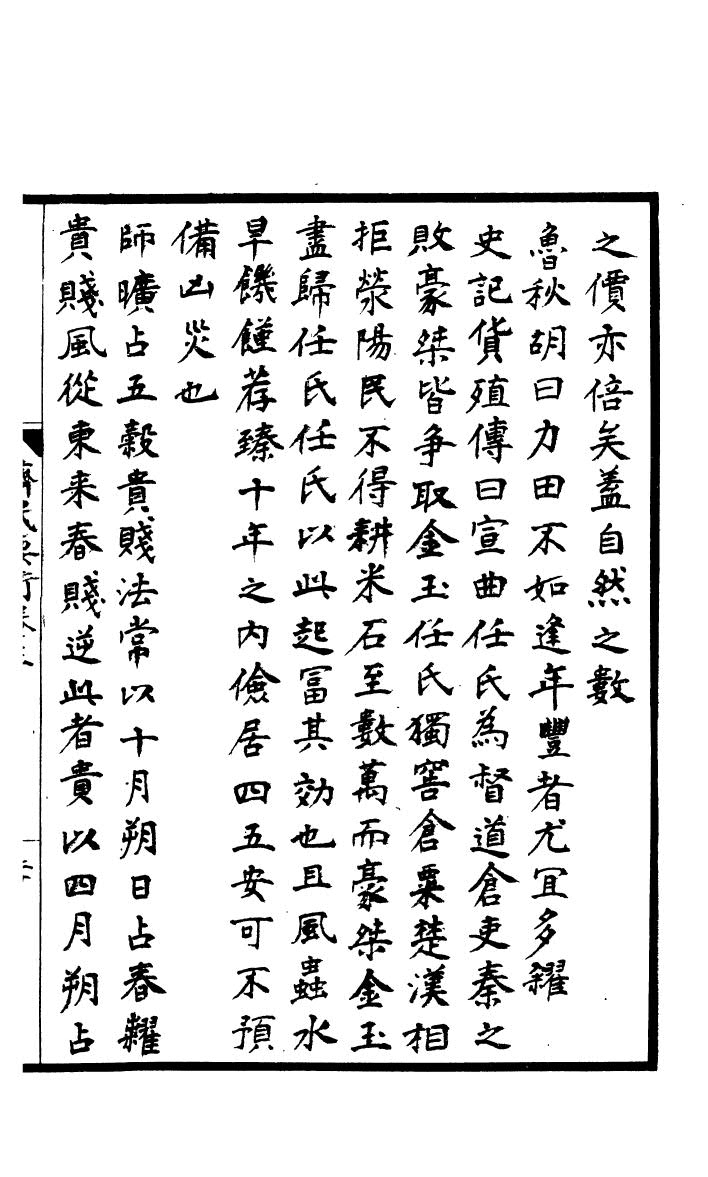 之價亦倍矣蓋自然之數
魯秋胡曰力田不如逢年豐者尤冝多糴
史記貨殖傳曰宣曲任氏為督道倉吏秦之
敗豪桀皆争取金玉任氏獨窖倉粟楚漢相
拒滎陽民不得耕米石至數萬而豪桀金玉
盡歸任氏任氏以此起冨其効也且風蟲水
旱饑饉荐臻十年之内儉居四五安可不預
備凶災也
師曠占五穀貴賤法常以十月朔日占春糶
貴賤風從東来春賤逆此者貴以四月朔占
齊民要術卷三